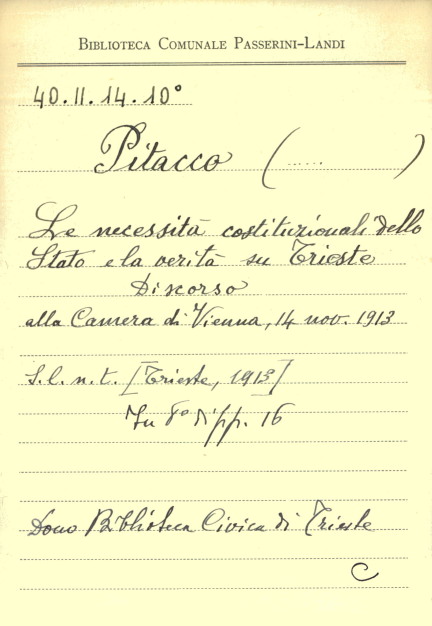 BIBLIOTECA COMUNALE PASSERINI-LANDI
40.II.14.10°
Pitacco (......)
Le necessità costituzionali dello
Stato e la verità su Trieste
Discorso
alla Camera di Vienna, 14 nov. 1913
S.l.n.t. [Trieste, 1913]
In 8° di pp. 16
Dono Biblioteca Civica di Trieste
C